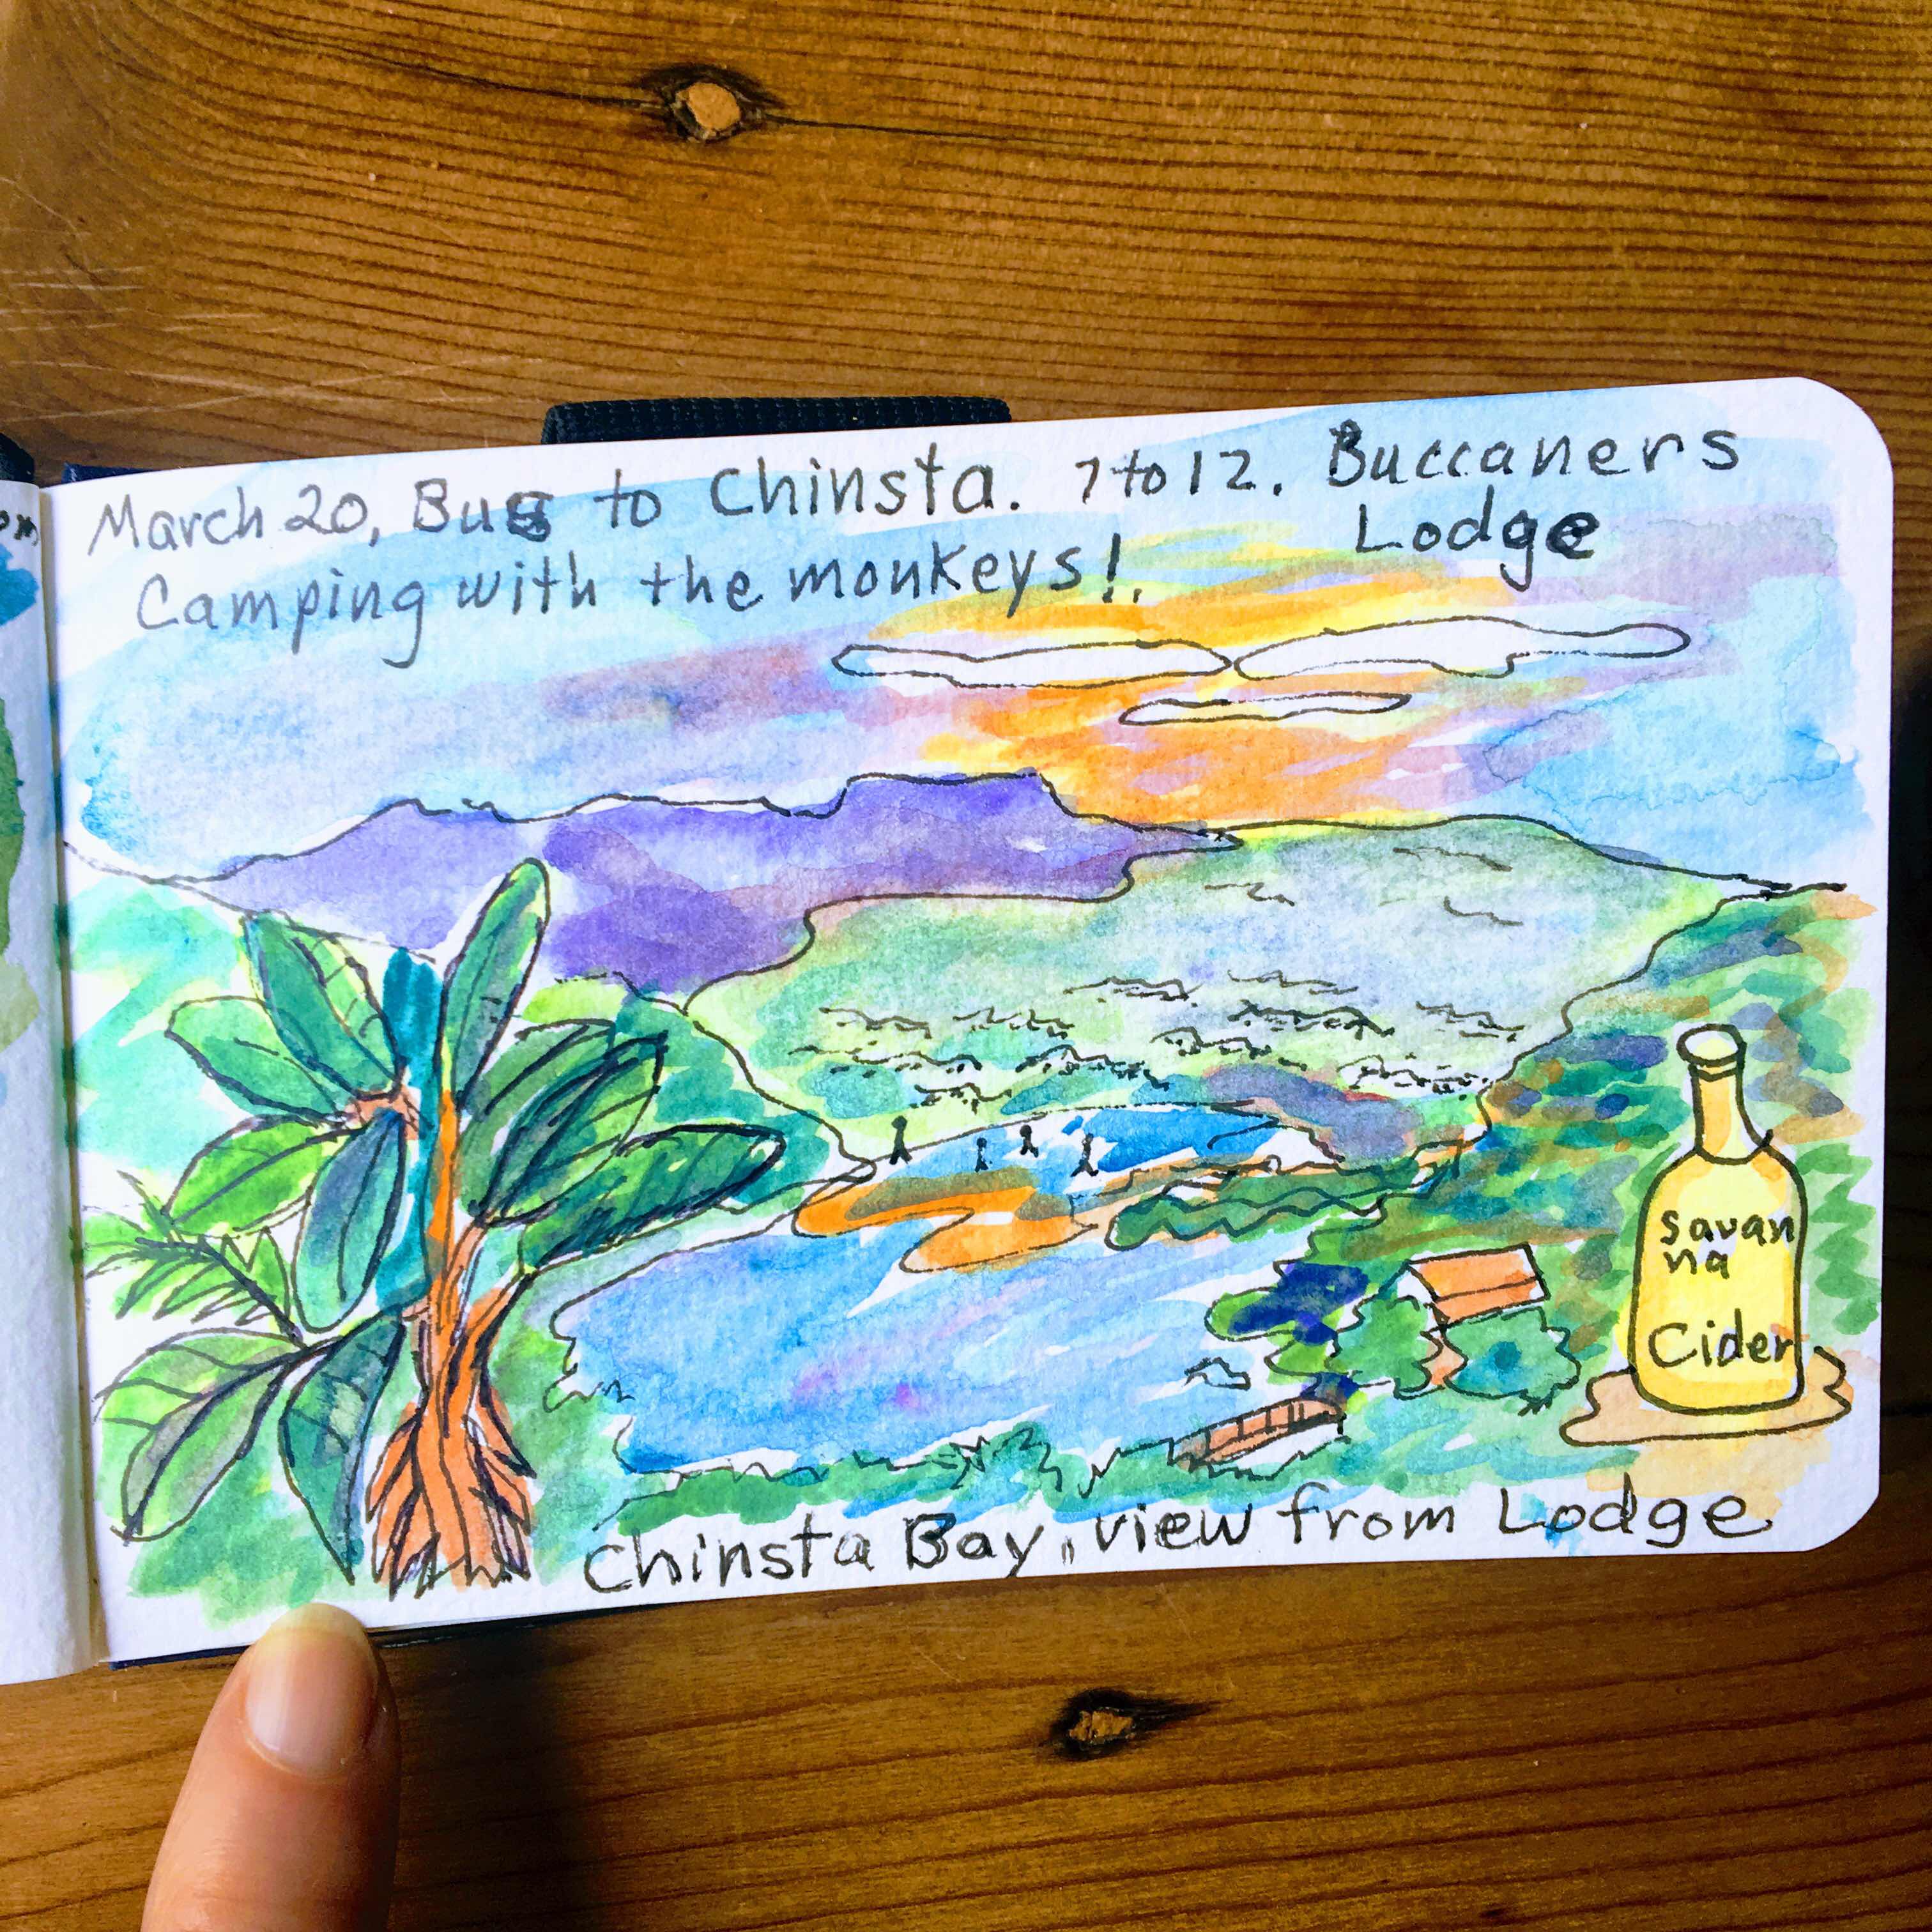 March 20, Bus to Chinsta. 7 to 12. Buccaners
Lodge
Camping with the monkeys!.
Savan
na
Cider
Chinsta Bay, view from Lodge